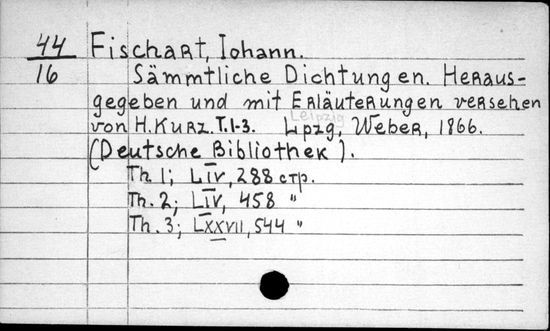 44 Fischart, Iohann.
16 Sämmtliche Dichtungen. Heraus-
gegeben und mit Erläuterungen versehen
Leipzig
von H. Kurz. T. 1-3. Lpzg, Weber, 1866.
(Deutsche Bibliothek).
Th. 1; LIV, 288 стр.
Th. 2; LIV, 458 "
Th. 3; LXXVII, 544 "